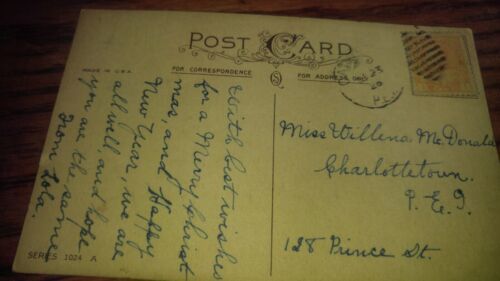 POST CARD
MADE IN U.S.A.
FOR CORRESPONDENCE
FOR ADDRESS ONLY
With best wishes
for a Merry Christ
mas, and Happy
New Year, we are
all well and hope
you are the same
From Lola.
Miss Willena McDonald
Charlottetown.
P.E.I.
128 Prince St.
SERIES 1024 A